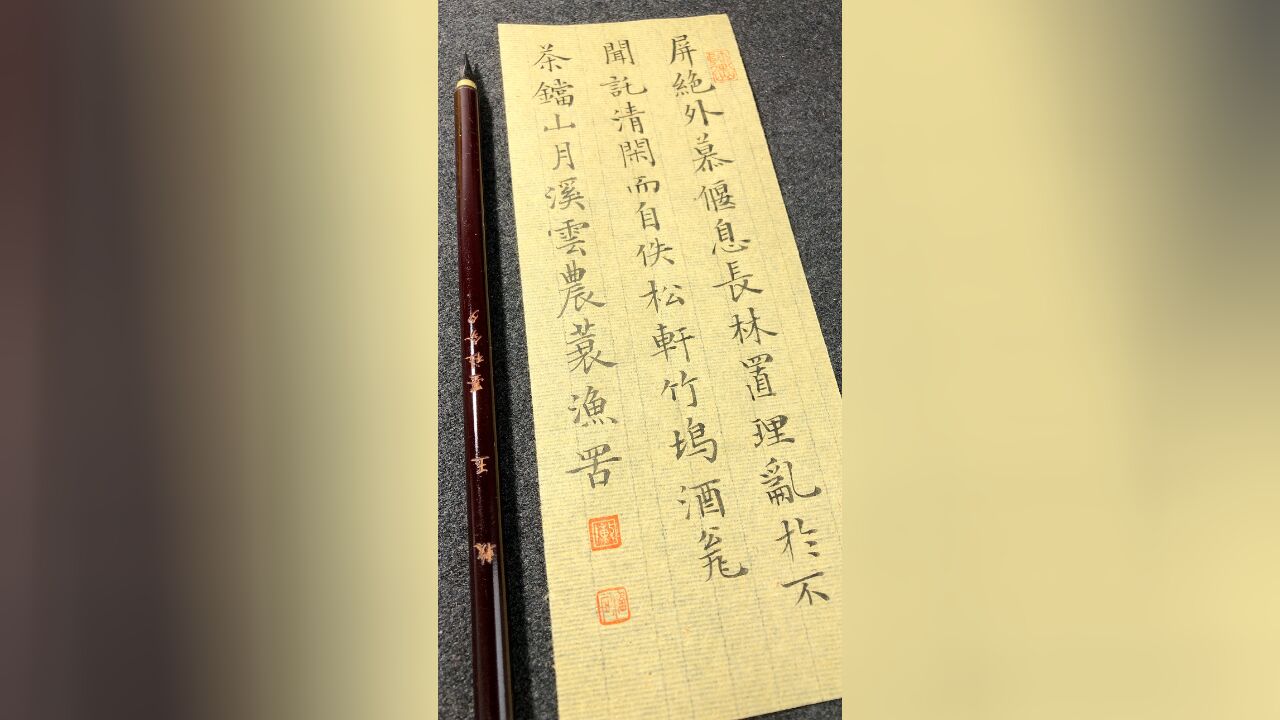 屏絶外慕偃息長林置理亂於不
聞託清閑而自佚松軒竹塢酒㼜
茶鐺山月溪雲農蓑漁罟